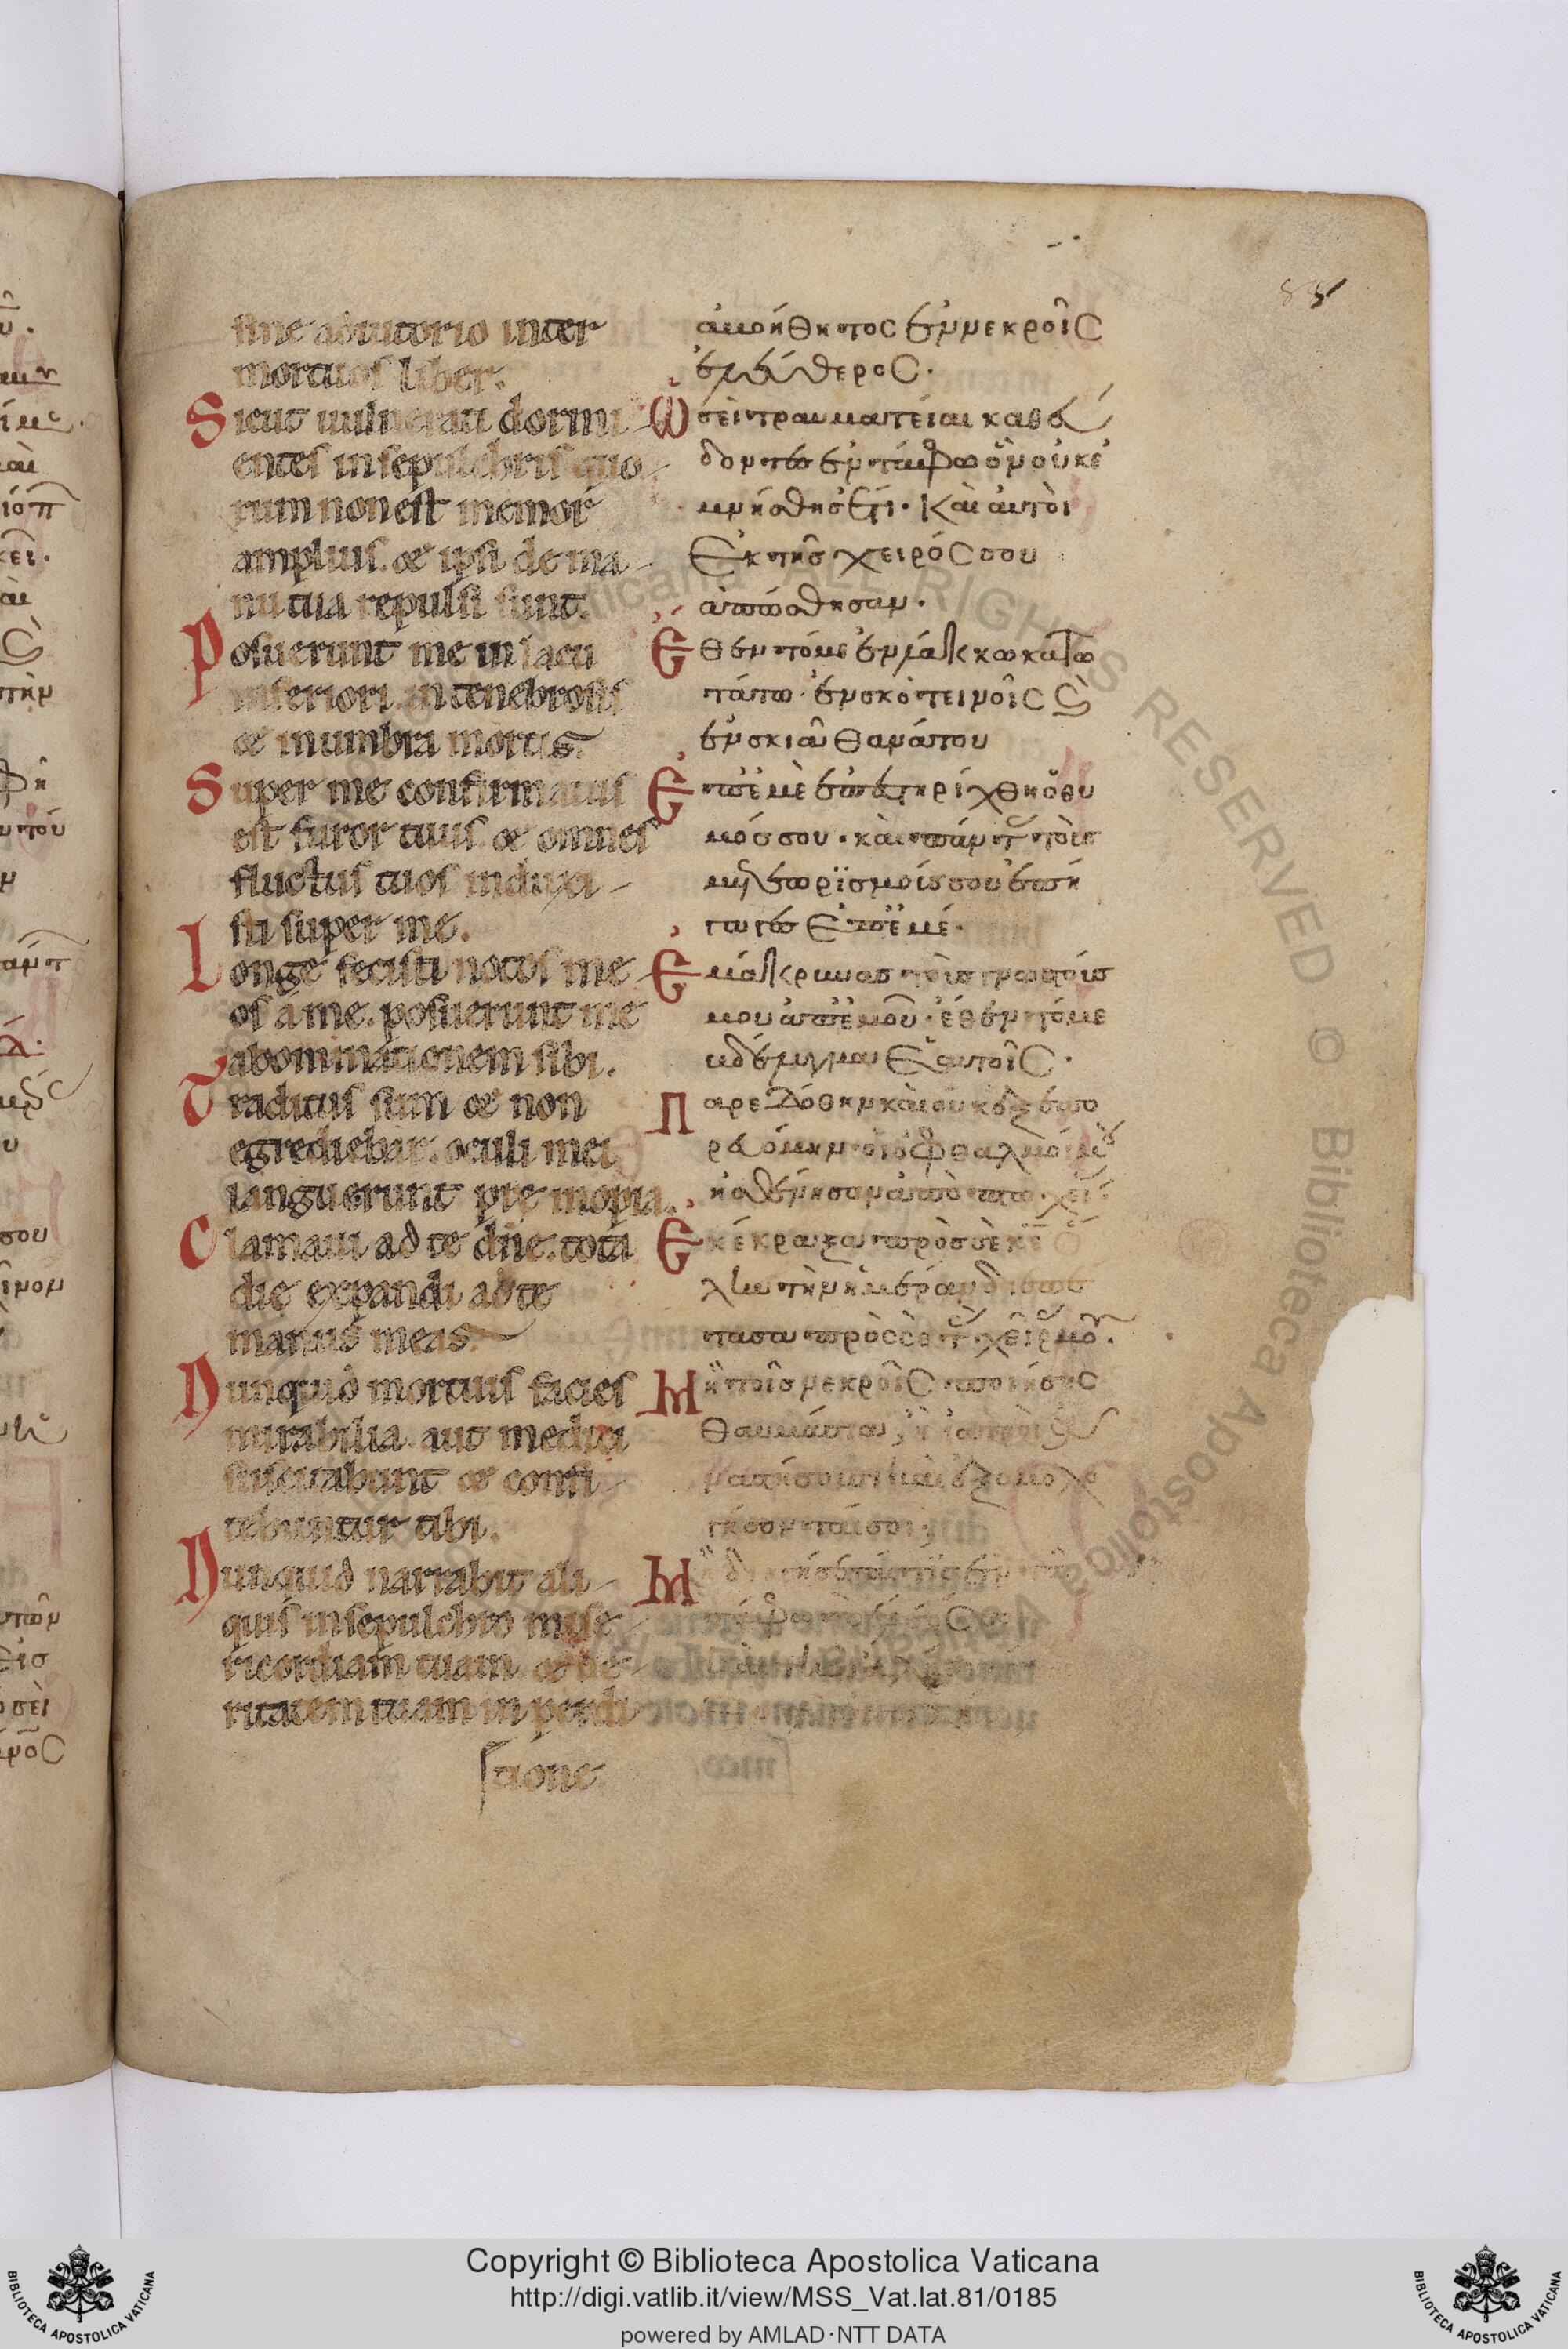 sine adiutorio inter
mortuos liber.
Sicut uulnerati dormi
entes in sepulchris quo
rum non est memor
amplius. & ipsi de ma
nu tua repulsi sunt.
Posuerunt me in lacu
inferiori. in tenebrosis
& in umbra mortis.
Super me confirmatus
est furor tuus. & omnes
fluctus tuos induxi
sti super me.
Longe fecisti notos me
os a me. posuerunt me
abominationem sibi.
Traditus sum & non
egrediebar. oculi mei
languerunt prę inopia.
Clamaui ad te dñe. tota
die expandi ad te
manus meas.
Nunquid mortuis facies
mirabilia. aut medici
suscitabunt & confi
tebuntur tibi.
Nunquid narrabit ali
quis in sepulchro mise
ricordiam tuam. & ue
ritatem tuam in perdi
tione.
88
ἀβοήθητος ἐν νεκροῖς
ἐλεύθερος.
Ὡσεὶ τραυματείαι καθεύ
δοντες ἐν τάφω ὃν οὐκ ἐ
μνήσθης ἔτι. Καὶ αὐτοὶ
Ἐκ τῆς χειρός σου
ἀπώσθησαν.
Ἔθεντό με ἐν λάκκω κατω
τάτω. ἐν σκοτεινοῖς καὶ
ἐν σκιᾶ θανάτου
Ἐπ' ἐμὲ ἐπεστηρίχθη ὁ θυ
μός σου. καὶ πάντας τοὺς
μετεωρϊσμούς σου ἐπή
γαγες ἐπ' ἐμέ.
Ἐμάκρυνας τοὺς γνωστούς
μου ἀπ' ἐμοῦ. ἔθεντό με
βδέλυγμα ἑαυτοῖς.
Παρεδόθην καὶ οὐκ ἐξεπο
ρευόμην. οἱ ὀφθαλμοί μου
ἠσθένησαν ἀπὸ
Ἐκέκραξα πρὸς σὲ κε
λην τὴν ἡμέραν διεπέ
τασα πρὸς σὲ τὰς χεῖράς μου.
Μὴ τοῖς νεκροῖς ποιήσεις
θαυμάσια ἢ ἰατροὶ
Copyright © Biblioteca Apostolica Vaticana
http://digi.vatlib.it/view/MSS_Vat.lat.81/0185
powered by AMLAD·NTT DATA